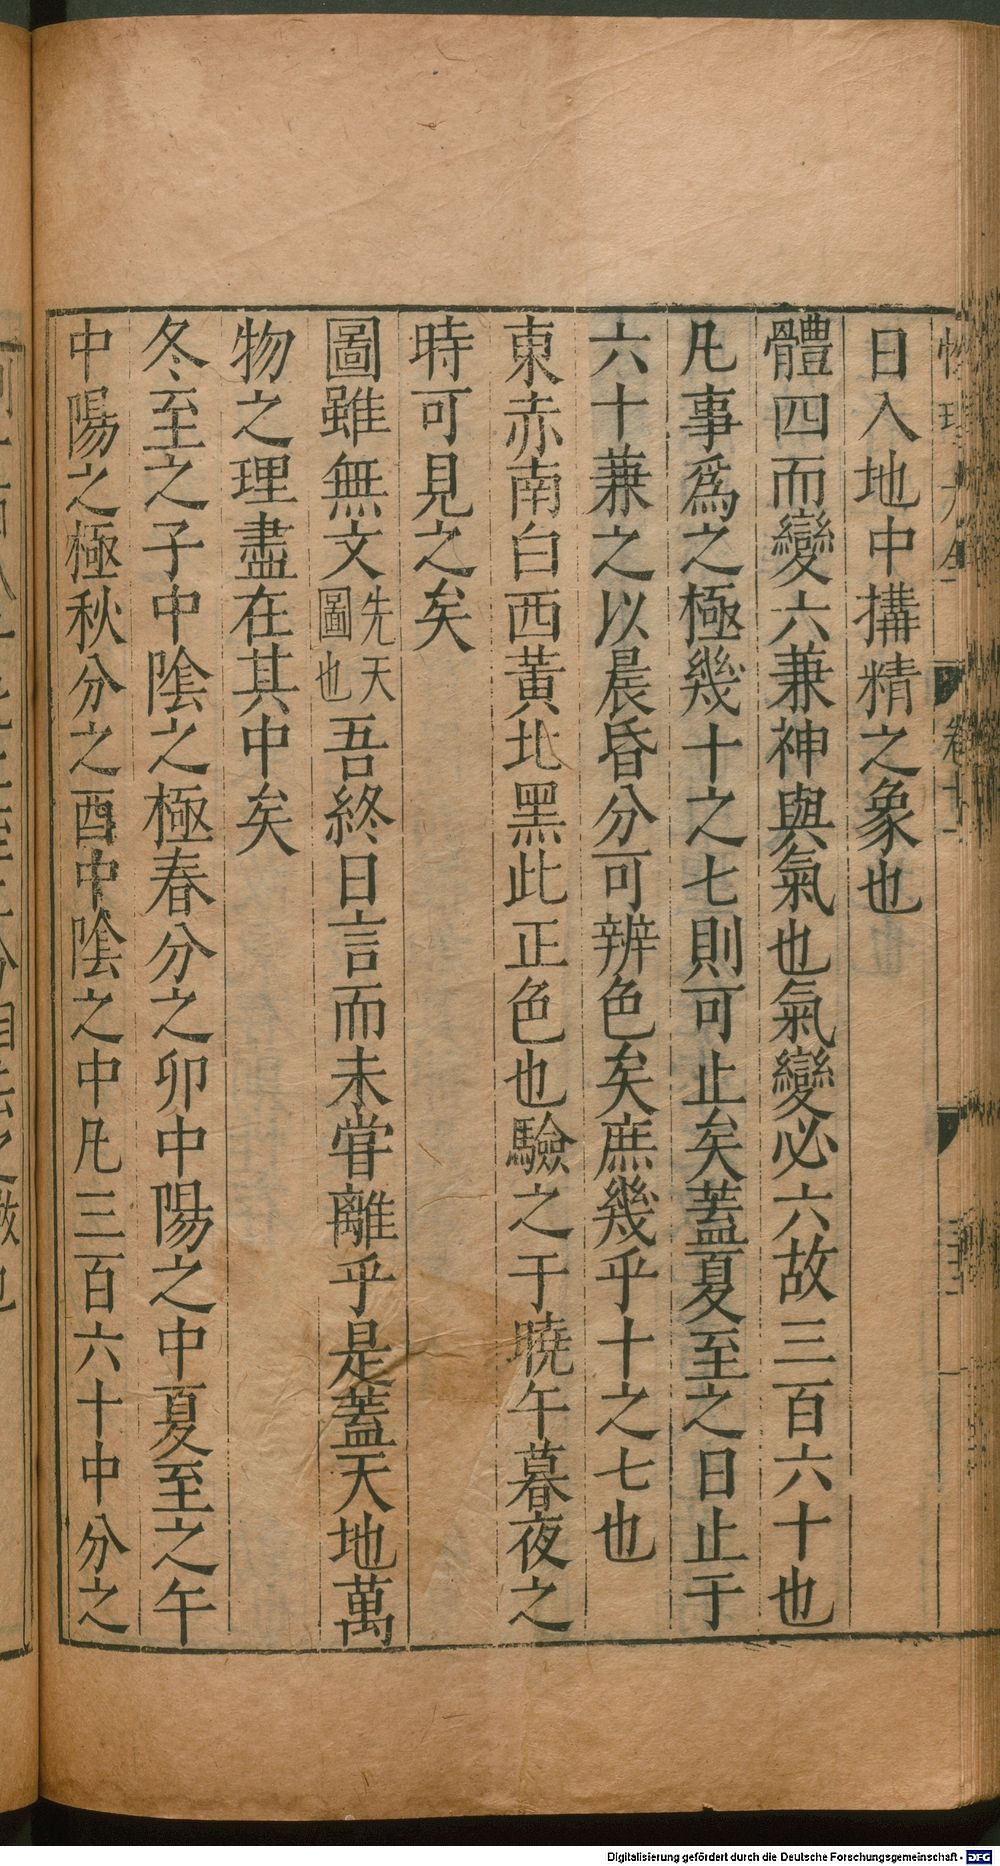 日入地中搆精之象也
體四而變六兼神與氣也氣變必六故三百六十也
凡事爲之極幾十之七則可止矣蓋夏至之日止于
六十兼之以晨昏分可辨色矣庶幾乎十之七也
東赤南白西黃北黑此正色也驗之于曉午暮夜之
時可見之矣
圖雖無文先天圖也吾終日言而未甞離乎是蓋天地萬
物之理盡在其中矣
冬至之子中陰之極春分之卯中陽之中夏至之午
中陽之極秋分之酉中陰之中凡三百六十中分之
Digitalisierung gefördert durch die Deutsche Forschungsgemeinschaft - DFG